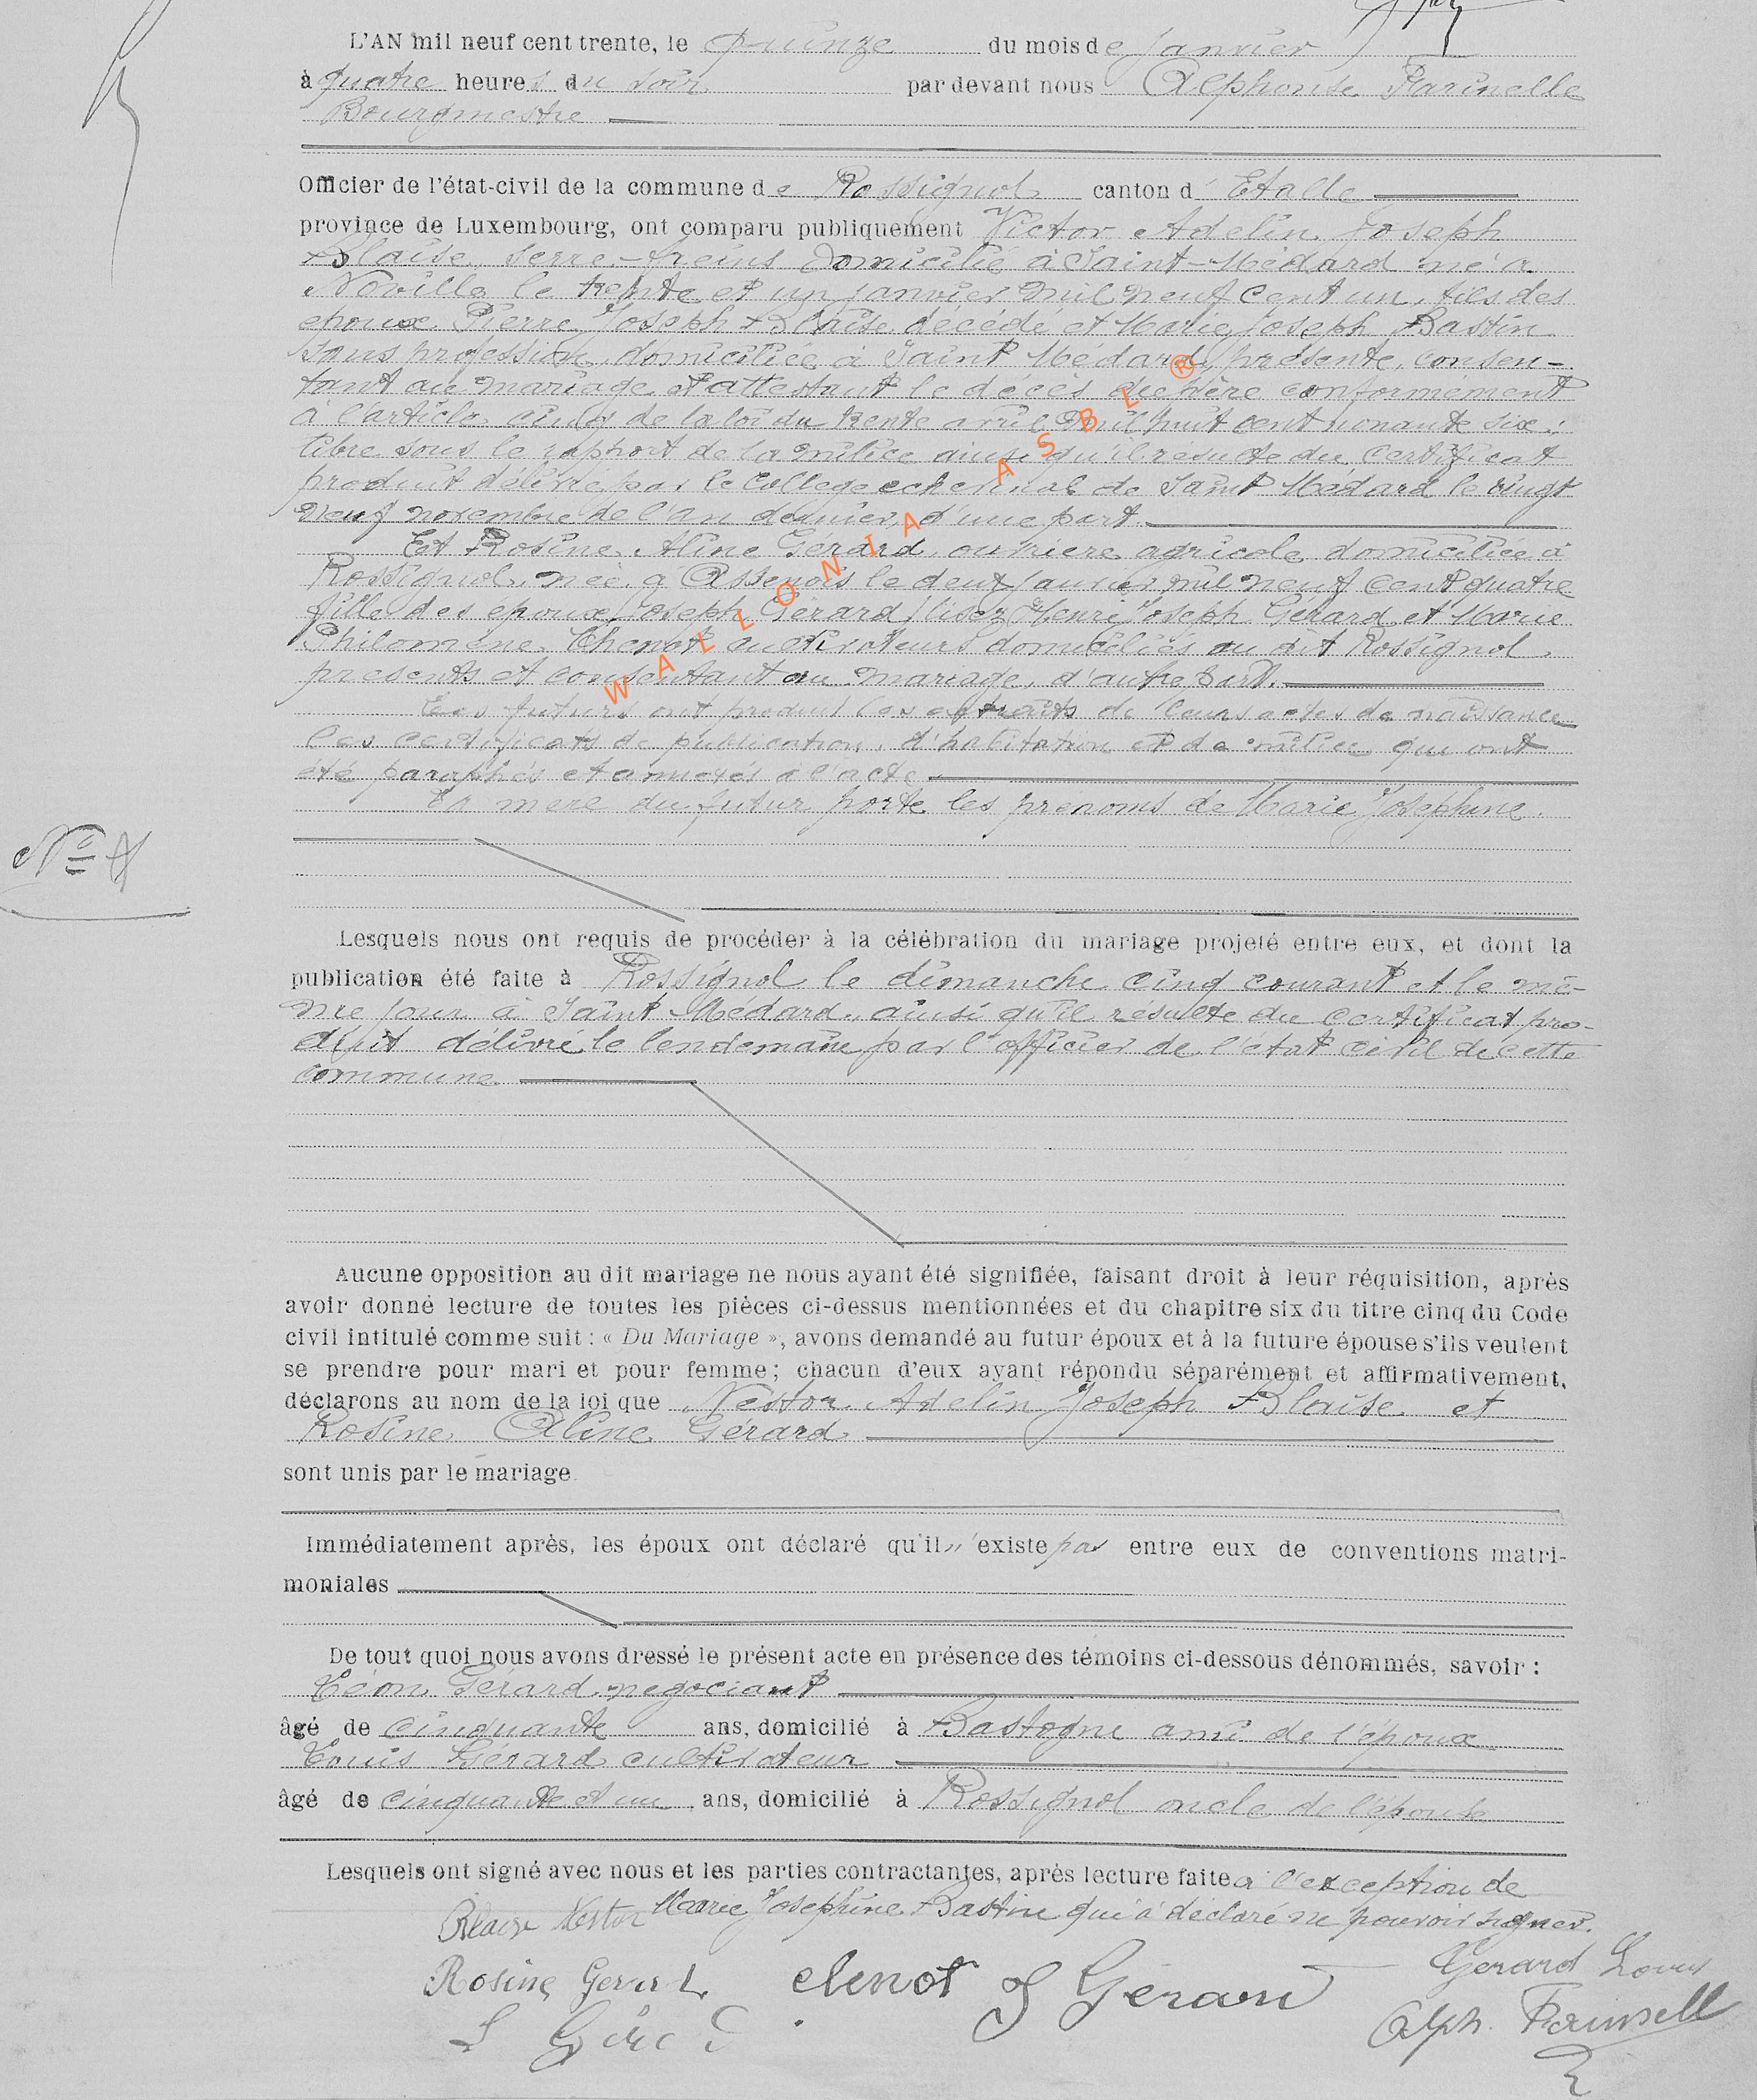 L'AN mil neuf cent trente, le quinze du mois de janvier
à quatre heures du soir par devant nous Alphonse Farinelle
Bourgmestre
Officier de l'état-civil de la commune de Rossignol canton d'Etalle
province de Luxembourg, ont comparu publiquement Victor Adelin Joseph
Blaise, serre-freins domicilié à Saint-Médard né à
Noville le trente et un janvier mil neuf cent un, fils des
époux Pierre Joseph Blaise décédé et Marie Joseph Bastin
sans profession, domiciliée à Saint Médard, présente, consen-
tant au mariage et attestant le décès du père conformément
à l'article cinq de la loi du trente avril mil huit cent nonante six;
libre sous le rapport de la milice ainsi qu'il résulte du certificat
produit délivré par le Collège échevinal de Saint Médard le vingt
neuf novembre de l'an dernier, d'une part.
Et Rosine Aline Gérard, ouvrière agricole, domiciliée à
Rossignol, née à Assenois le deux janvier mil neuf cent quatre
fille des époux Joseph Gérard, lisez Henri Joseph Gérard et Marie
Philomène Chenot cultivateurs domiciliés au dit Rossignol,
présents et consentant au mariage, d'autre part.
Les futurs ont produit les extraits de leurs actes de naissance
les certificats de publication, d'habitation et de milice qui ont
été paraphés et annexés à l'acte
La mère du futur porte les prénoms de Marie Joséphine.
N° 4
Lesquels nous ont requis de procéder à la célébration du mariage projeté entre eux, et dont la
publication été faite à Rossignol le dimanche cinq courant et le mê-
me jour à Saint Médard, ainsi qu'il résulte du certificat pro-
duit délivré le lendemain par l'officier de l'état civil de cette
commune
Aucune opposition au dit mariage ne nous ayant été signifiée, faisant droit à leur réquisition, après
avoir donné lecture de toutes les pièces ci-dessus mentionnées et du chapitre six du titre cinq du Code
civil intitulé comme suit : « Du Mariage », avons demandé au futur époux et à la future épouse s'ils veulent
se prendre pour mari et pour femme; chacun d'eux ayant répondu séparément et affirmativement,
déclarons au nom de la loi que Nestor Adelin Joseph Blaise et
Rosine Aline Gérard
sont unis par le mariage.
Immédiatement après, les époux ont déclaré qu'il n'existe pas entre eux de conventions matri-
moniales
De tout quoi nous avons dressé le présent acte en présence des témoins ci-dessous dénommés, savoir :
Léon Gérard négociant
âgé de cinquante ans, domicilié à Bastogne ami de l'époux
Louis Gérard cultivateur
âgé de cinquante et un ans, domicilié à Rossignol oncle de l'épouse
Lesquels ont signé avec nous et les parties contractantes, après lecture faite à l'exception de
Marie Joséphine Bastin qui a déclaré ne pouvoir signer.
Blaise Nestor
Rosine Gerard chenot J Gérard Gerard Louis
L Gérard Alph. Farinelle
WALLONIA ASBL ®